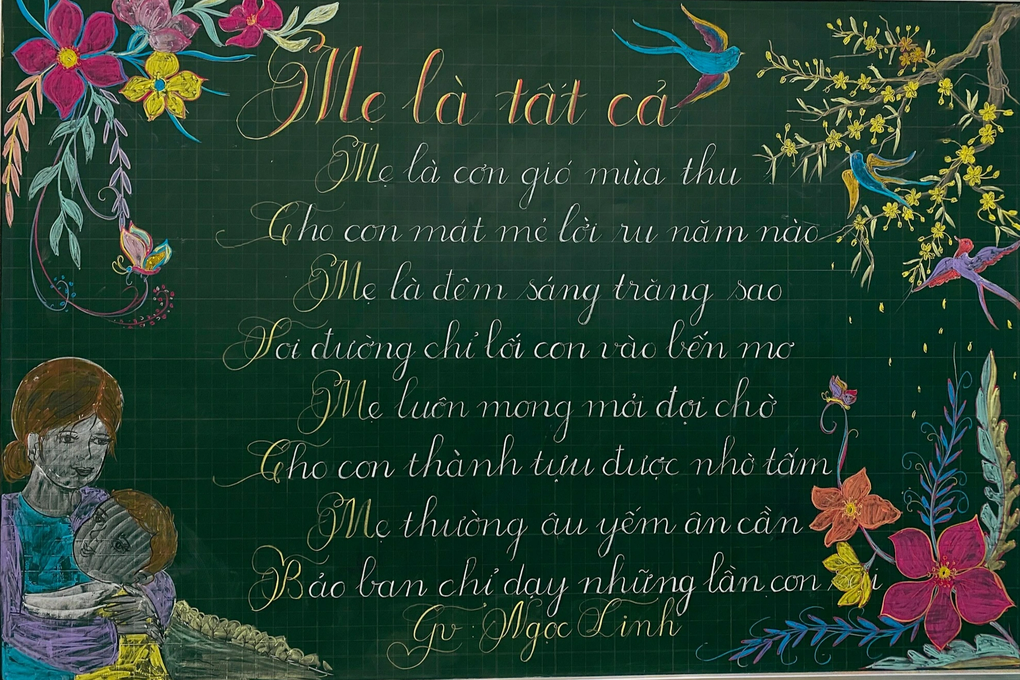 Mẹ là tất cả
Mẹ là cơn gió mùa thu
Cho con mát mẻ lời ru năm nào
Mẹ là đêm sáng trăng sao
Soi đường chỉ lối con vào bến mơ
Mẹ luôn mong mỏi đợi chờ
Cho con thành tựu được nhờ tấm
Mẹ thường âu yếm ân cần
Bảo ban chỉ dạy những lần con
Gv: Ngọc Linh